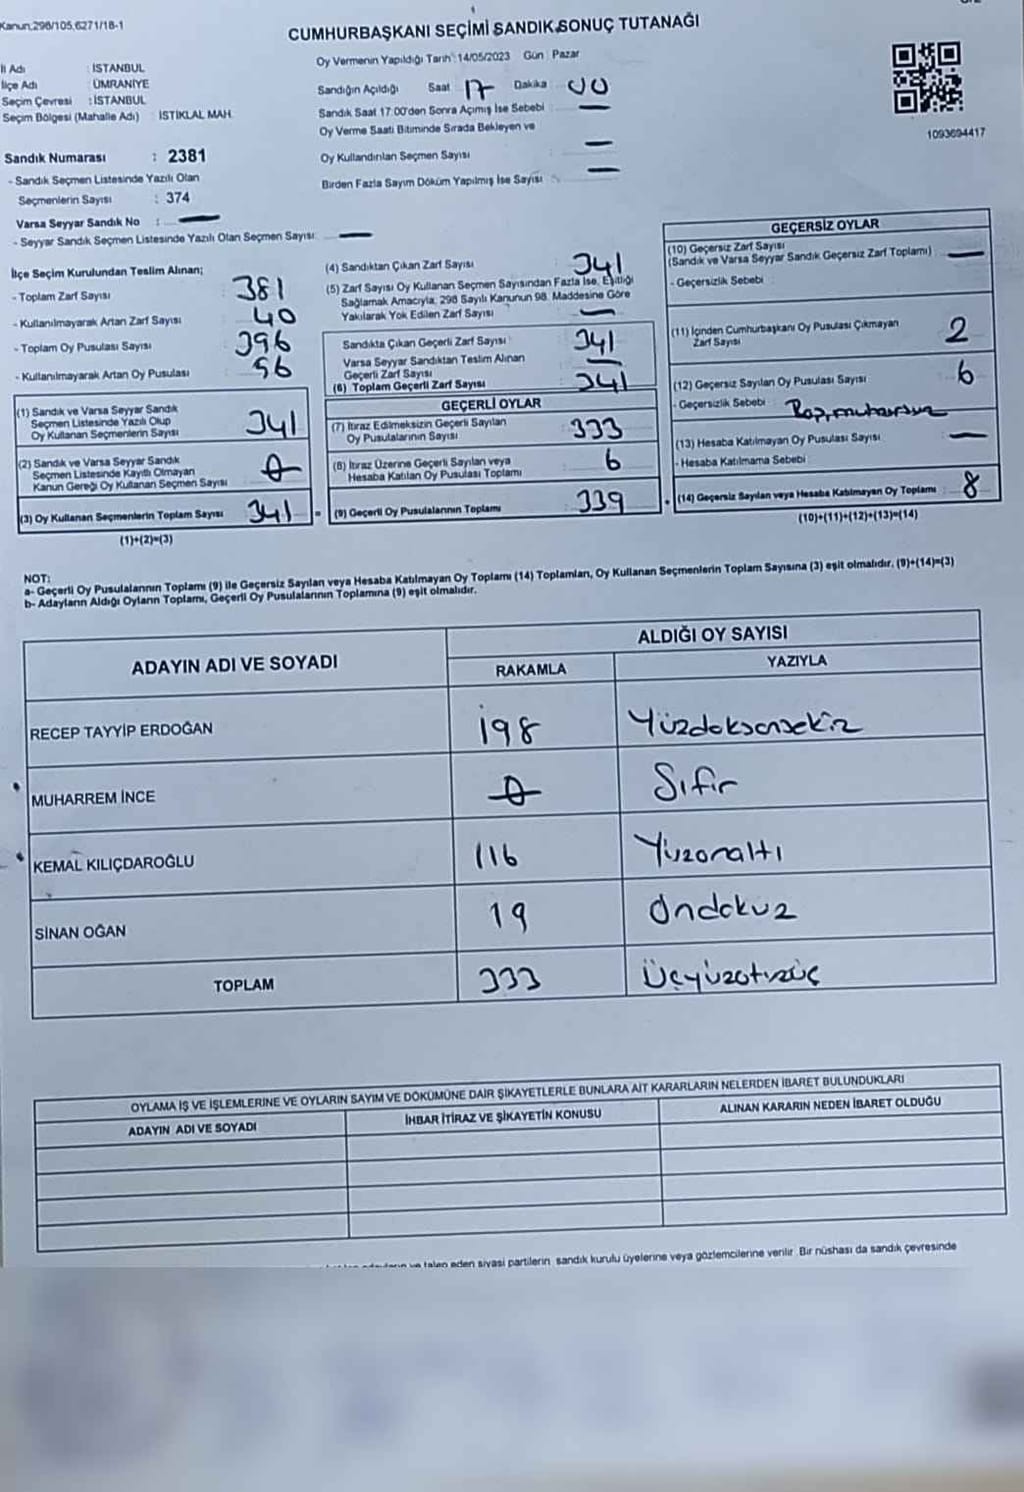 Kanun;298/105,6271/18-1
CUMHURBAŞKANI SEÇİMİ SANDIK SONUÇ TUTANAĞI
Oy Vermenin Yapıldığı Tarih: 14/05/2023 Gün : Pazar
İl Adı : İSTANBUL
İlçe Adı : ÜMRANİYE
Seçim Çevresi : İSTANBUL
Seçim Bölgesi (Mahalle Adı) : İSTİKLAL MAH.
Sandığın Açıldığı Saat 17 Dakika 00
Sandık Saat 17:00'den Sonra Açımış İse Sebebi : —
Oy Verme Saati Bitiminde Sırada Bekleyen ve
Oy Kullandırılan Seçmen Sayısı : —
Birden Fazla Sayım Döküm Yapılmış İse Sayısı : —
1093694417
Sandık Numarası : 2381
- Sandık Seçmen Listesinde Yazılı Olan
Seçmenlerin Sayısı : 374
Varsa Seyyar Sandık No : —
- Seyyar Sandık Seçmen Listesinde Yazılı Olan Seçmen Sayısı: —
İlçe Seçim Kurulundan Teslim Alınan;
- Toplam Zarf Sayısı 381
- Kullanılmayarak Artan Zarf Sayısı 40
- Toplam Oy Pusulası Sayısı 396
- Kullanılmayarak Artan Oy Pusulası 56
(1) Sandık ve Varsa Seyyar Sandık
Seçmen Listesinde Yazılı Olup
Oy Kullanan Seçmenlerin Sayısı 341
(2) Sandık ve Varsa Seyyar Sandık
Seçmen Listesinde Kayıtlı Olmayan
Kanun Gereği Oy Kullanan Seçmen Sayısı 0
(3) Oy Kullanan Seçmenlerin Toplam Sayısı 341 =
(1)+(2)=(3)
(4) Sandıktan Çıkan Zarf Sayısı 341
(5) Zarf Sayısı Oy Kullanan Seçmen Sayısından Fazla İse, Eşitliği
Sağlamak Amacıyla, 298 Sayılı Kanunun 98. Maddesine Göre
Yakılarak Yok Edilen Zarf Sayısı —
Sandıkta Çıkan Geçerli Zarf Sayısı 341
Varsa Seyyar Sandıktan Teslim Alınan
Geçerli Zarf Sayısı —
(6) Toplam Geçerli Zarf Sayısı 341
GEÇERLİ OYLAR
(7) İtiraz Edilmeksizin Geçerli Sayılan
Oy Pusulalarının Sayısı 333
(8) İtiraz Üzerine Geçerli Sayılan veya
Hesaba Katılan Oy Pusulası Toplamı 6
(9) Geçerli Oy Pusulalarının Toplamı 339 +
GEÇERSİZ OYLAR
(10) Geçersiz Zarf Sayısı
(Sandık ve Varsa Seyyar Sandık Geçersiz Zarf Toplamı) —
- Geçersizlik Sebebi :
(11) İçinden Cumhurbaşkanı Oy Pusulası Çıkmayan
Zarf Sayısı 2
(12) Geçersiz Sayılan Oy Pusulası Sayısı 6
- Geçersizlik Sebebi :
(13) Hesaba Katılmayan Oy Pusulası Sayısı —
- Hesaba Katılmama Sebebi :
(14) Geçersiz Sayılan veya Hesaba Katılmayan Oy Toplamı 8
(10)+(11)+(12)+(13)=(14)
NOT:
a- Geçerli Oy Pusulalarının Toplamı (9) ile Geçersiz Sayılan veya Hesaba Katılmayan Oy Toplamı (14) Toplamları, Oy Kullanan Seçmenlerin Toplam Sayısına (3) eşit olmalıdır, (9)+(14)=(3)
b- Adayların Aldığı Oyların Toplamı, Geçerli Oy Pusulalarının Toplamına (9) eşit olmalıdır.
ADAYIN ADI VE SOYADI ALDIĞI OY SAYISI
RAKAMLA YAZIYLA
RECEP TAYYİP ERDOĞAN 198 Yüzdoksensekiz
MUHARREM İNCE 0 Sıfır
KEMAL KILIÇDAROĞLU 116 Yüzonaltı
SİNAN OĞAN 19 Ondokuz
TOPLAM 333 Üçyüzotuzüç
OYLAMA İŞ VE İŞLEMLERİNE VE OYLARIN SAYIM VE DÖKÜMÜNE DAİR ŞİKAYETLERLE BUNLARA AİT KARARLARIN NELERDEN İBARET BULUNDUKLARI
ADAYIN ADI VE SOYADI İHBAR İTİRAZ VE ŞİKAYETİN KONUSU ALINAN KARARIN NEDEN İBARET OLDUĞU
ve talep eden siyasi partilerin sandık kurulu üyelerine veya gözlemcilerine verilir. Bir nüshası da sandık çevresinde